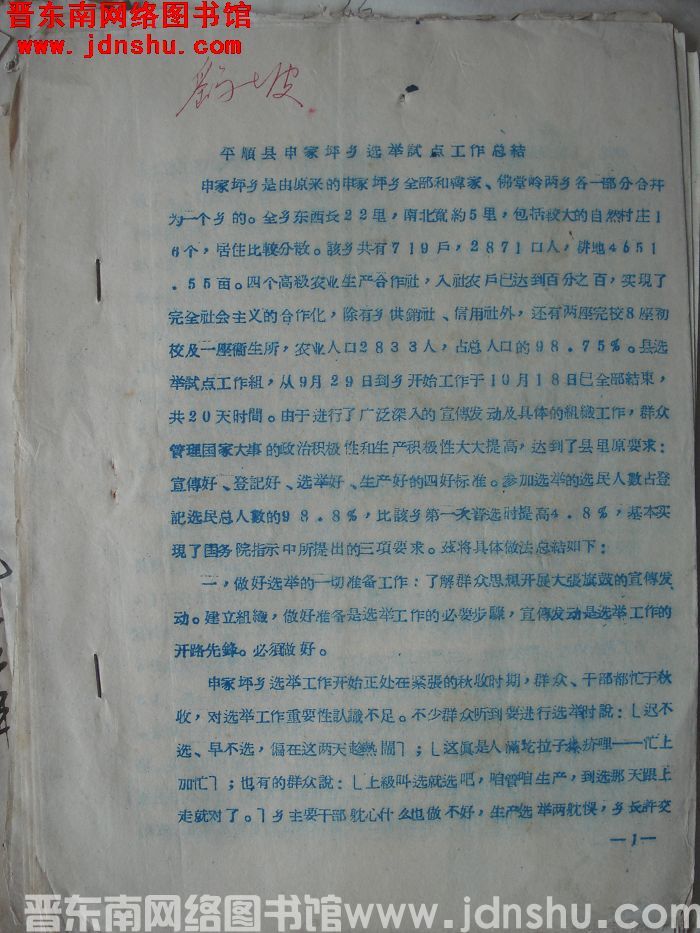 晋东南网络图书馆
www.jdnshu.com
平順县申家坪乡选举試点工作总結
申家坪乡是由原来的申家坪乡全部和韓家、佛堂岭两乡各一部分合并
为一个乡的。全乡东西長22里，南北寬約5里，包括較大的自然村庄1
6个，居住比較分散。該乡共有719戶，2871口人，耕地4651
.55亩。四个高級农业生产合作社，入社农戶已达到百分之百，实現了
完全社会主义的合作化，除有乡供銷社、信用社外，还有两座完校8座初
校及一座衞生所，农业人口2833人，占总人口的98.75%。县选
举試点工作組，从9月29日到乡开始工作于10月18日已全部結束，
共20天时間。由于进行了广泛深入的宣傳发动及具体的組織工作，群众
管理国家大事的政治积极性和生产积极性大大提高，达到了县里原要求：
宣傳好、登記好、选举好、生产好的四好标准。参加选举的选民人數占登
記选民总人數的98.8%，比該乡第一次普选时提高4.8%，基本实
現了国务院指示中所提出的三項要求。茲将具体做法总結如下：
一，做好选举的一切准备工作：了解群众思想开展大張旗鼓的宣傳发
动。建立組織，做好准备是选举工作的必要步驟，宣傳发动是选举工作的
开路先鋒。必須做好。
申家坪乡选举工作开始正处在緊張的秋收时期，群众、干部都忙于秋
收，对选举工作重要性認識不足。不少群众听到要进行选举时說：⌊迟不
选、早不选，偏在这两天趁熱鬧⌉；⌊这眞是人滿圪拉子 ——忙上
加忙⌉；也有的群众說：⌊上級叫选就选吧，咱管咱生产，到选那天跟上
走就对了。⌉乡主要干部躭心什么也做不好，生产选举两躭悞，乡長許交
—1—
晋东南网络图书馆 www.jdnshu.com